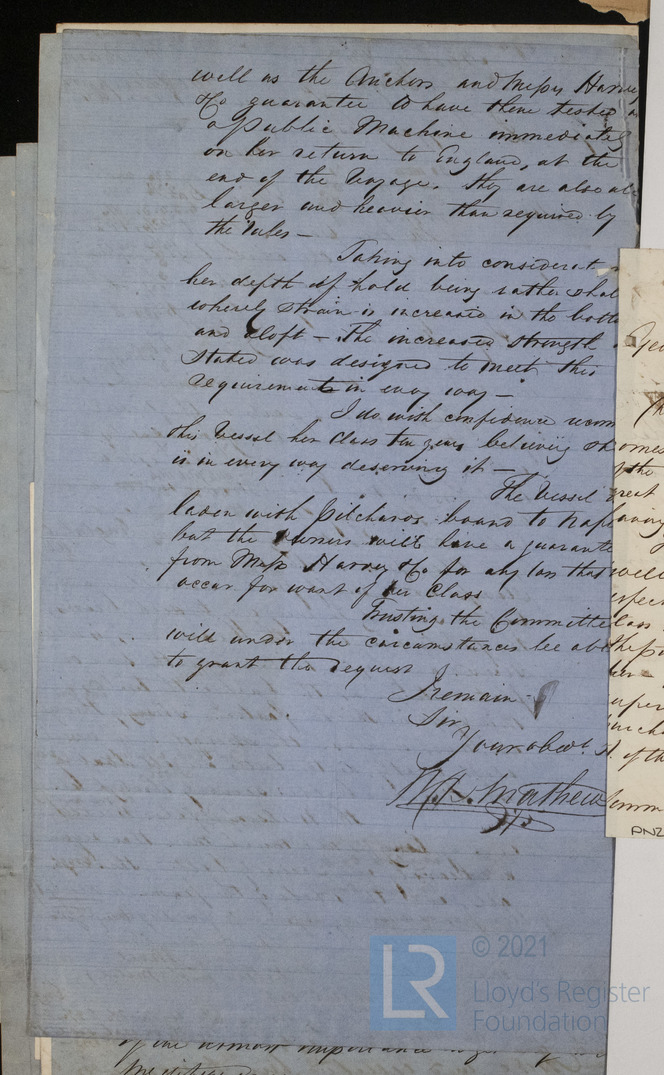 well as the Anchors and Messrs Harvey
& Co guarantee to have them tested
a public Machine immediately
on her return to England, at the
end of the Voyage. They are also
larger and heavier than required by
the rules —
Taking into considerat
her depth of hold being rather shal
whereby strain is increased in the bott
and aloft — The increased strength
stated was designed to meet this
requirements in every way —
I do with confidence recom
this Vessel her Class ten years believing
is in every way deserving it —
The Vessel
laden with Pilchards bound to Nap
but the owners will have a guarante
from Messrs Harvey & Co for any loss that
occur for want of her Class
Trusting the Committee
will under the circumstances bee ab
to grant the request
I remain
Sir
Your obedt. S
W. D. Mathews
great
well
of the
PNZ
© 2021
LR
Lloyd's Register
Foundation
of the utmost importance